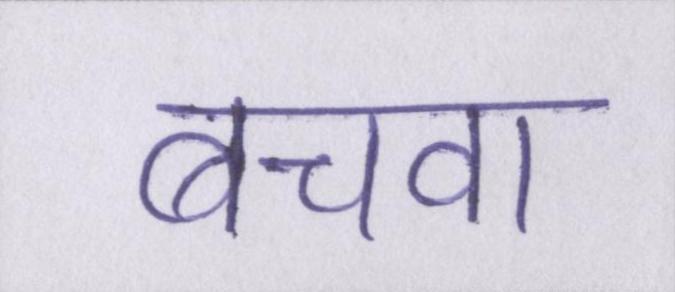 बचवा